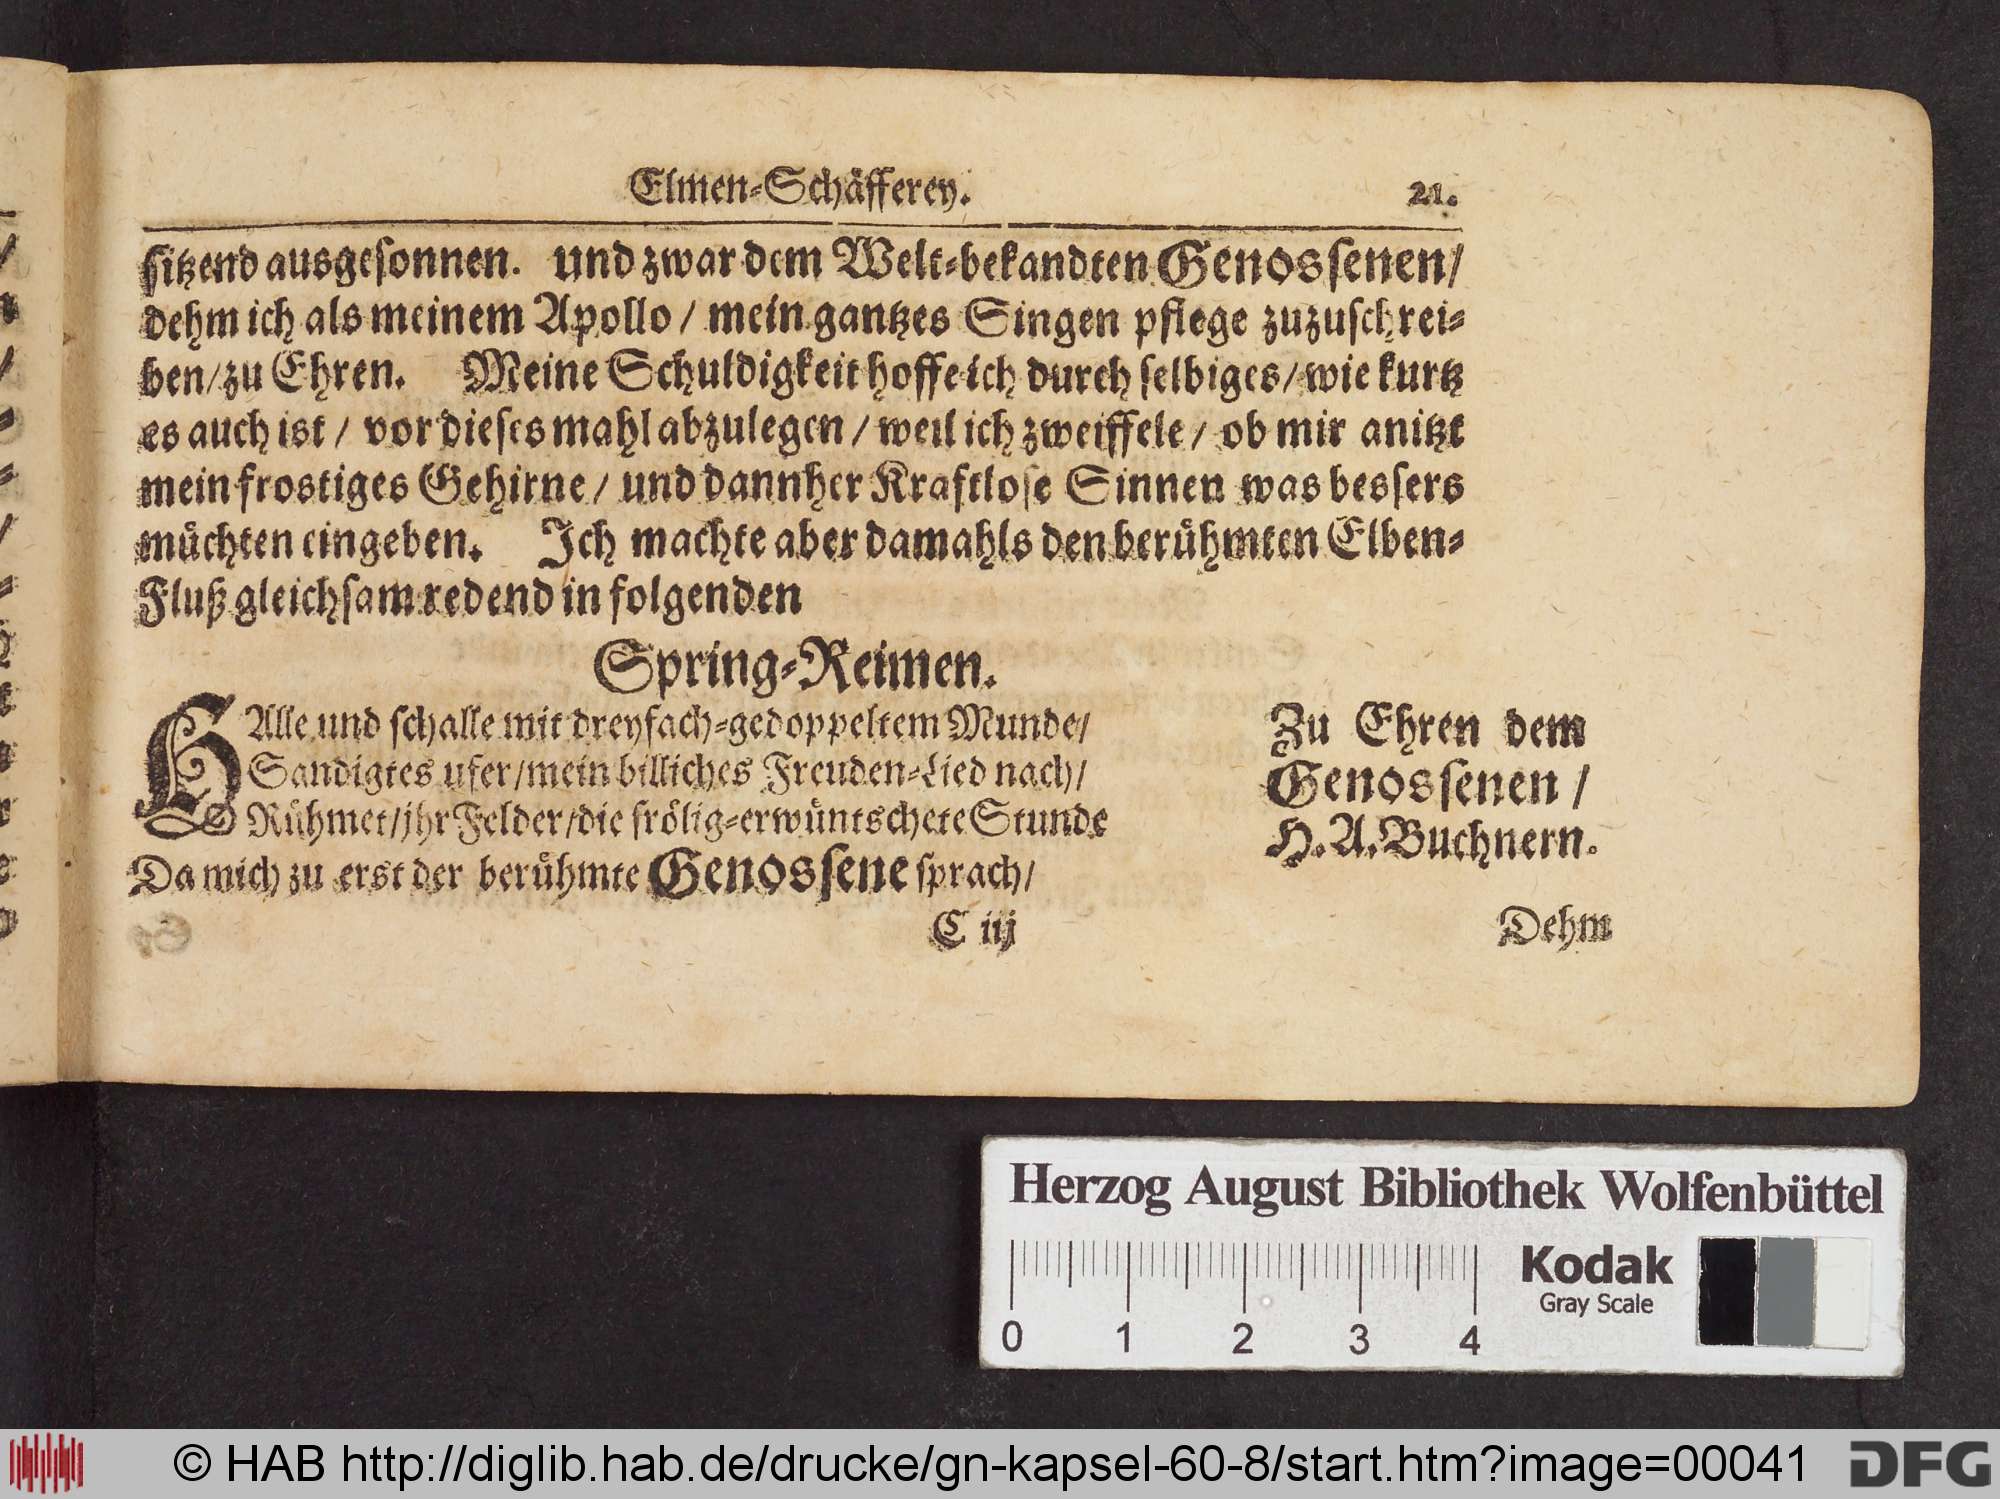 Elmen-Schäfferey. 21.
sitzend ausgesonnen. und zwar dem Welt-bekandten Genossenen/
dehm ich als meinem Apollo/ mein gantzes Singen pflege zuzuschrei-
ben/ zu Ehren. Meine Schuldigkeit hoffe ich durch selbiges/ wie kurtz
es auch ist/ vor dieses mahl abzulegen/ weil ich zweiffele/ ob mir anitzt
mein frostiges Gehirne/ und dannher Kraftlose Sinnen was bessers
müchten eingeben. Ich machte aber damahls den berühmten Elben-
Fluß gleichsam redend in folgenden
Spring-Reimen.
HAlle und schalle mit dreyfach-gedoppeltem Munde/
Sandigtes ufer/ mein billiches Freuden-Lied nach/
Rühmet/ jhr Felder/ die frölig-erwüntschete Stunde
Da mich zu erst der berühmte Genossene sprach/
Zu Ehren dem
Genossenen/
H. A. Buchnern.
C iij
Dehm
Herzog August Bibliothek Wolfenbüttel
0 1 2 3 4
Kodak
Gray Scale
© HAB http://diglib.hab.de/drucke/gn-kapsel-60-8/start.htm?image=00041
DFG